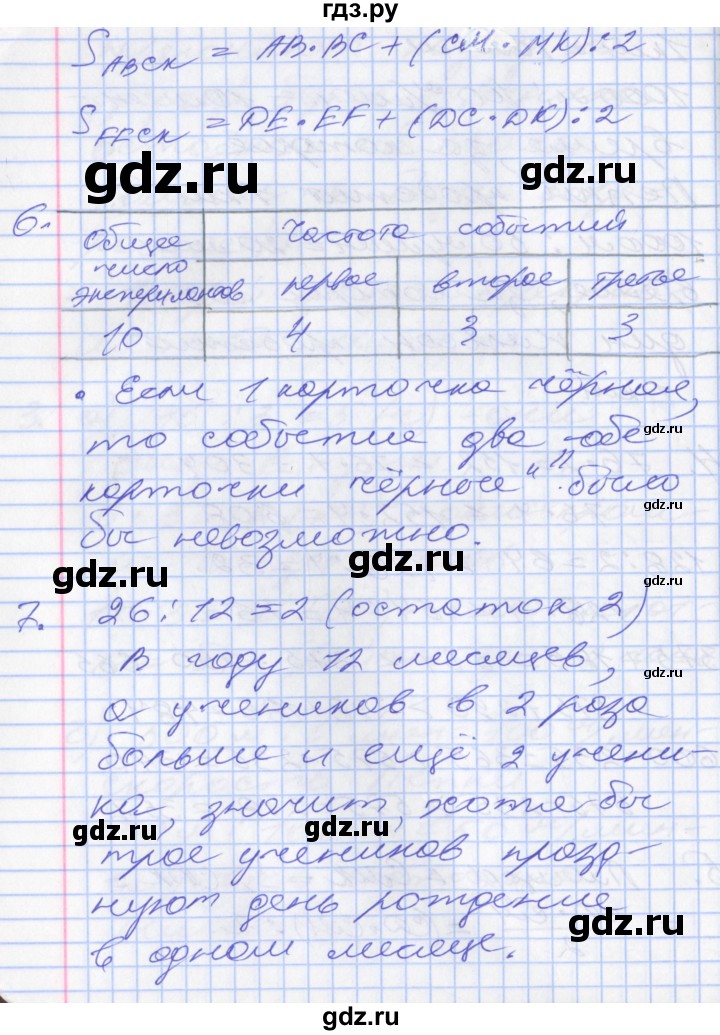 гдз.ру
S ABCK = AB·BC + (CM·MK):2
S FFCK = DE·EF + (DC·DK):2
gdz.ru
gdz.ru
6.
Общее число экспериментов
Частота событий
первое второе третье
10 4 3 3
• Если 1 карточка чёрная,
то событие два „обе
карточки чёрные“ было
бы невозможно.
gdz.ru
gdz.ru
gdz.ru
7. 26:12=2 (остаток 2)
В году 12 месяцев,
gdz.ru
а учеников в 2 раза
больше и ещё 2 учени-
ка, значит, хотя бы
gdz.ru
gdz.ru
трое учеников празд-
нуют день рождение
в одном месяце.
gdz.ru
gdz.ru
gdz.ru